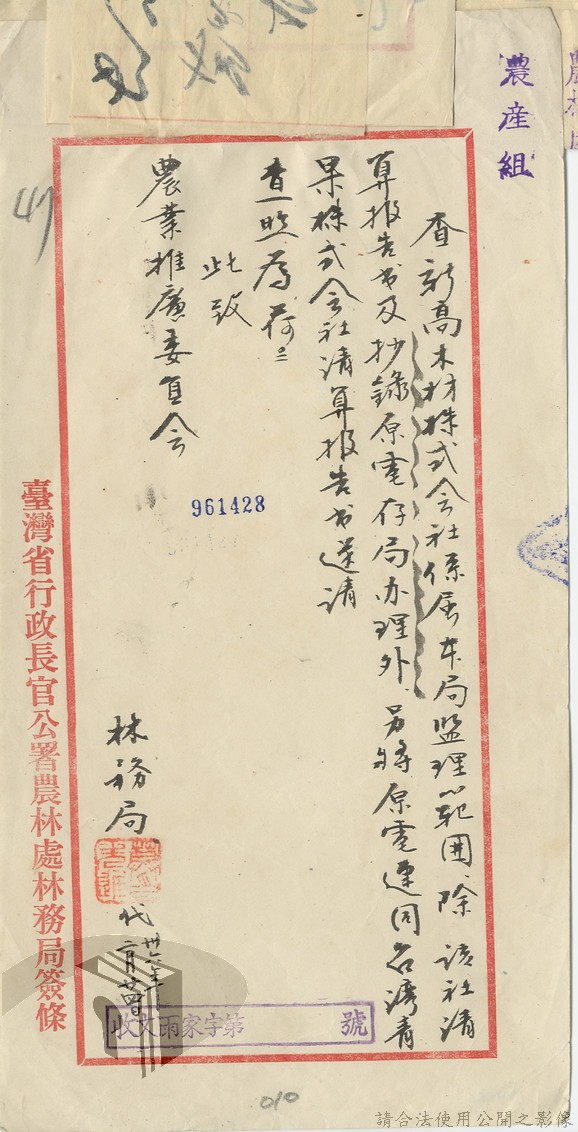 農產組
查新高木材株式会社係屬本局监理範囲、除該社清
算报告书及抄錄原電存局办理外、另將原電連同台湾青
果株式会社清算报告书送請
查照為荷
此致
農業推廣委員会
961428
林務局
代
收文雨家字第 號
臺灣省行政長官公署農林處林務局簽條
010
請合法使用公開之影像